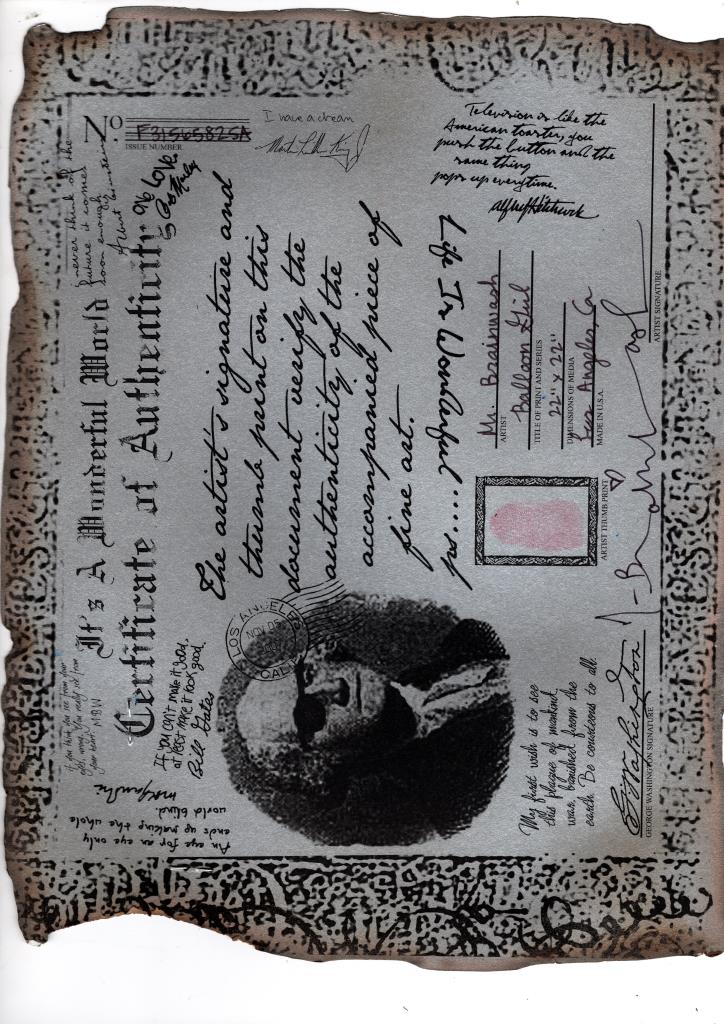 It's A Wonderful World
Certificate of Authenticity
No.
F3156582SA
ISSUE NUMBER
never think of the
future it comes
soon enough
Albert Einstein
% Love
Bob Marley
I have a dream
Martin Luther King Jr
Television is like the
American toaster, you
push the button and the
same thing
pops up everytime.
Alfred Hitchcock
If you think you see from your
MBW
An eye for an eye only
ends up making the whole
world blind.
If you can't make it good,
at least make it look good.
Bill Gates
LOS ANGELES
NOV 05
CALIF
The artist's signature and
thumb print on this
document verify the
authenticity of the
accompanied piece of
fine art.
ps.... Life Is Wonderful
My first wish is to see
this plague of mankind,
war, banished from the
earth. Be courteous to all.
G Washington
GEORGE WASHINGTON SIGNATURE
ARTIST THUMB PRINT
Mr. Brainwash
ARTIST
Balloon Girl
TITLE OF PRINT AND SERIES
22" x 22"
DIMENSIONS OF MEDIA
Los Angeles, Ca
MADE IN U.S.A.
ARTIST SIGNATURE